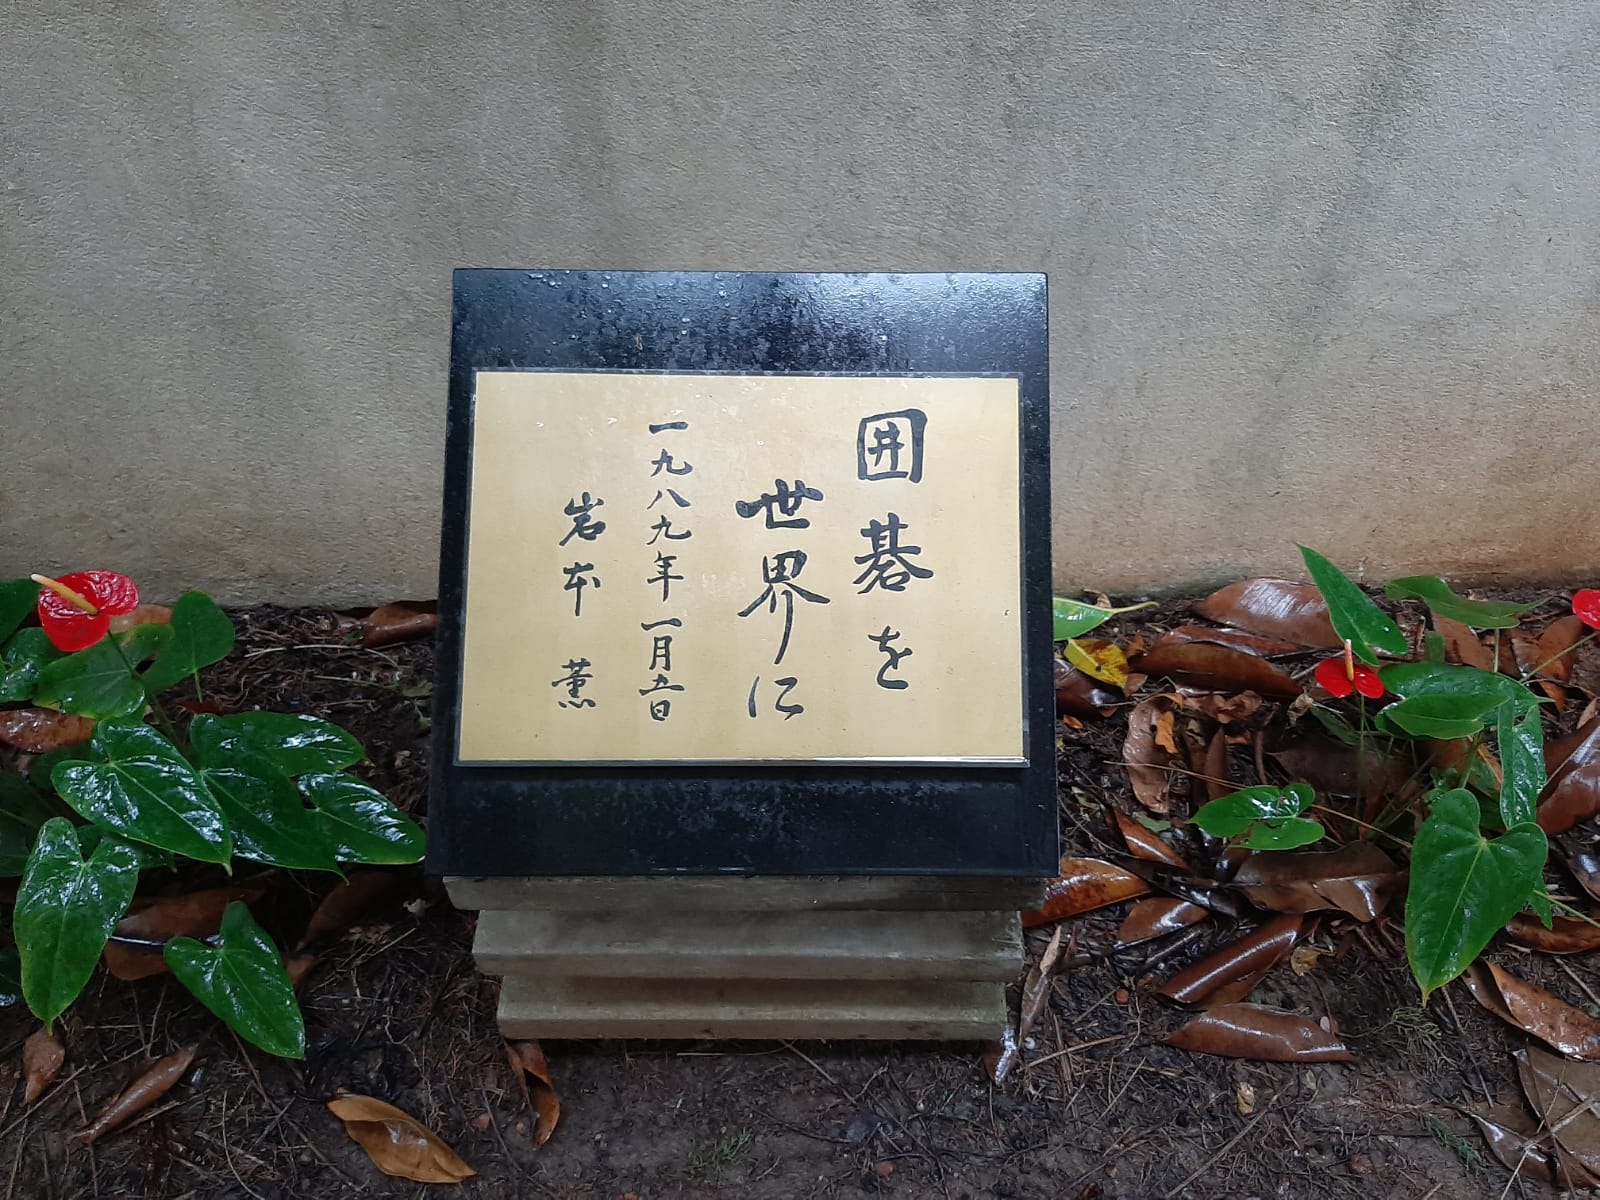 囲碁を
世界に
一九八九年一月五日
岩本 薫